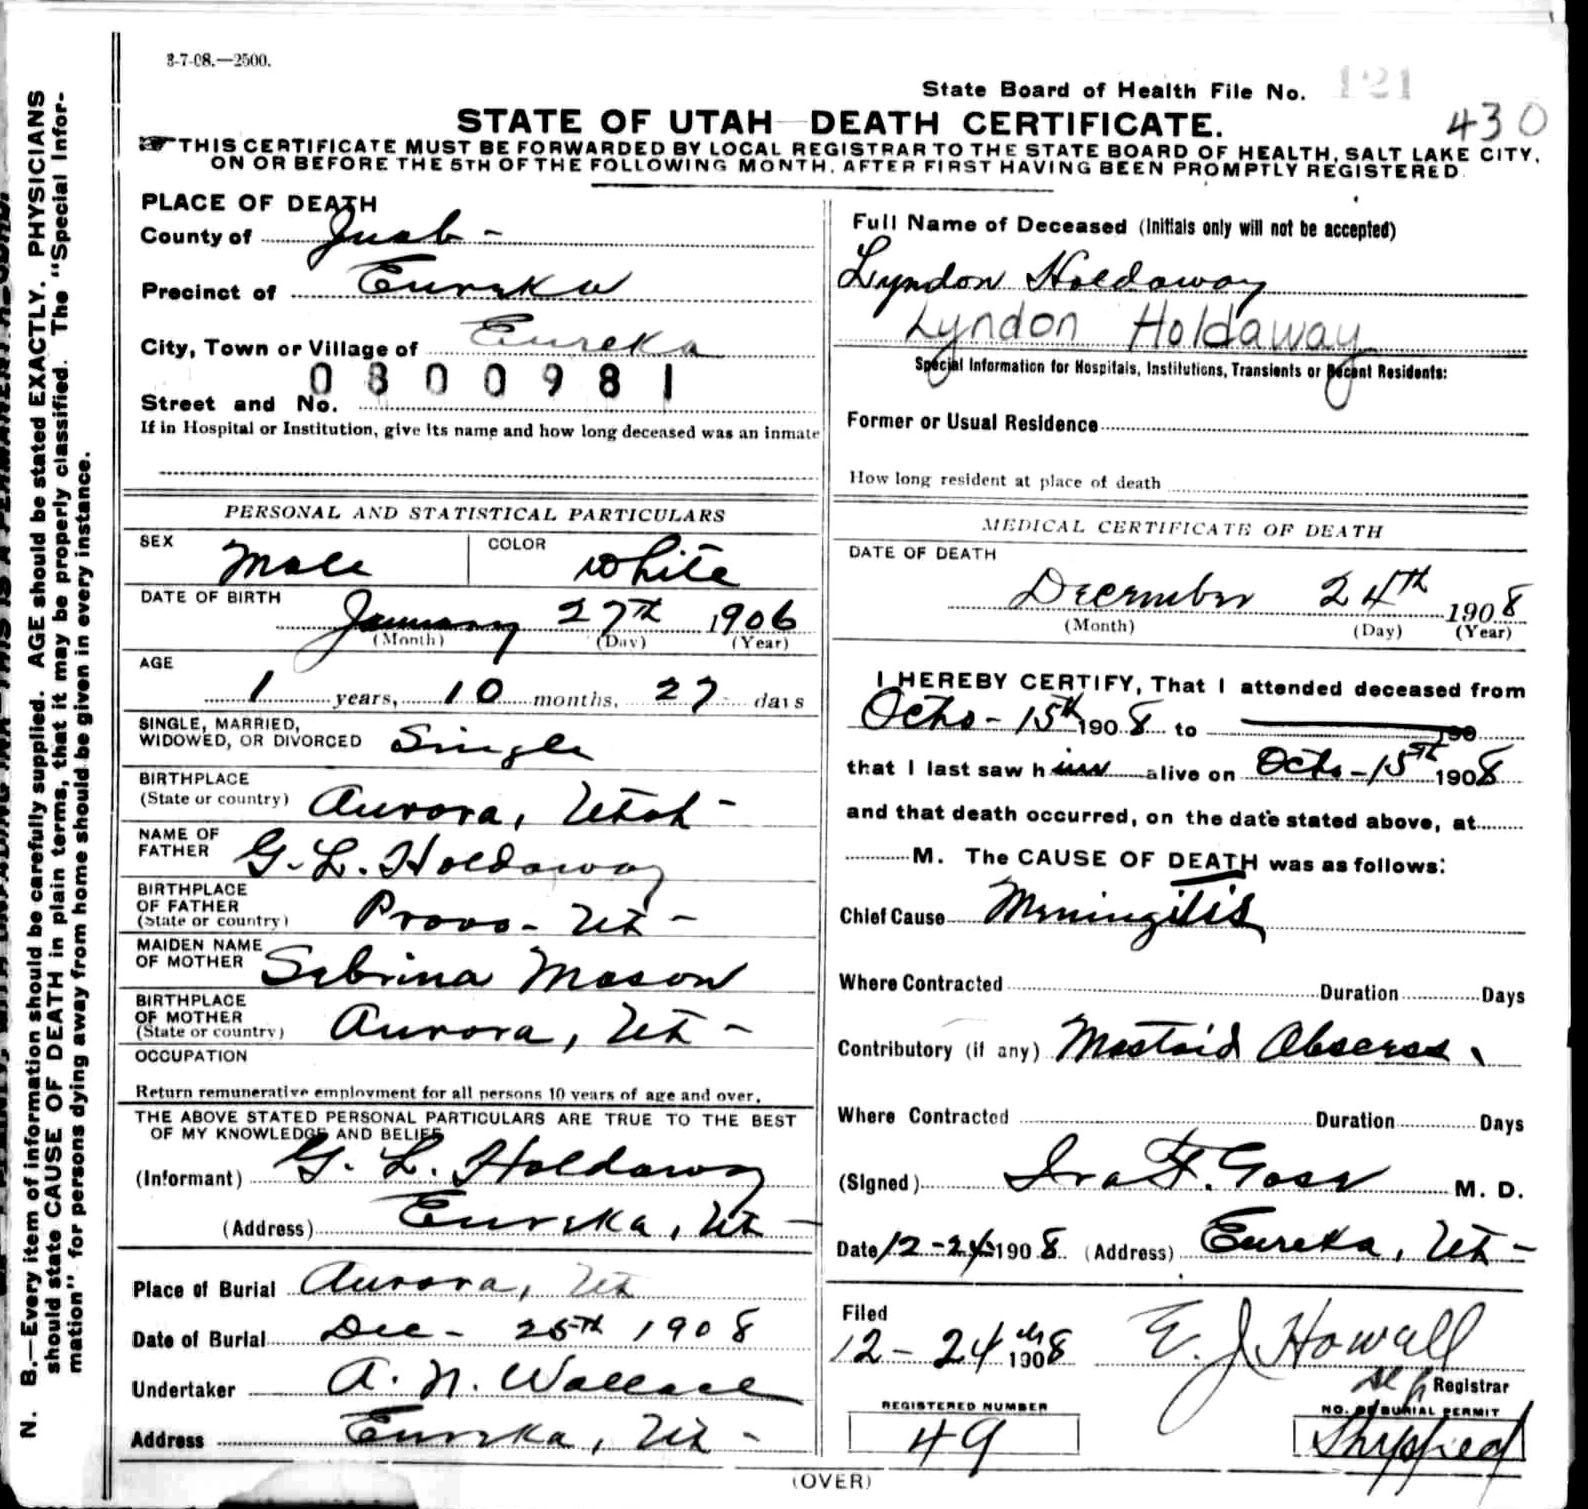 3-7-08.—2500.
State Board of Health File No. 121
430
STATE OF UTAH—DEATH CERTIFICATE.
THIS CERTIFICATE MUST BE FORWARDED BY LOCAL REGISTRAR TO THE STATE BOARD OF HEALTH, SALT LAKE CITY,
ON OR BEFORE THE 5TH OF THE FOLLOWING MONTH, AFTER FIRST HAVING BEEN PROMPTLY REGISTERED.
PLACE OF DEATH
County of Juab -
Precinct of Eureka
City, Town or Village of Eureka
0300981
Street and No.
If in Hospital or Institution, give its name and how long deceased was an inmate
Full Name of Deceased (Initials only will not be accepted)
Lyndon Holdaway
Lyndon Holdaway
Special Information for Hospitals, Institutions, Transients or Recent Residents:
Former or Usual Residence
How long resident at place of death
PERSONAL AND STATISTICAL PARTICULARS
SEX Male COLOR White
DATE OF BIRTH
January 27th 1906
(Month) (Day) (Year)
AGE
1 years, 10 months, 27 days
SINGLE, MARRIED,
WIDOWED, OR DIVORCED Single
BIRTHPLACE
(State or country) Aurora, Utah -
NAME OF
FATHER G. L. Holdaway
BIRTHPLACE
OF FATHER
(State or country) Provo - Ut -
MAIDEN NAME
OF MOTHER Sabrina Mason
BIRTHPLACE
OF MOTHER
(State or country) Aurora, Ut -
OCCUPATION
Return remunerative employment for all persons 10 years of age and over.
THE ABOVE STATED PERSONAL PARTICULARS ARE TRUE TO THE BEST
OF MY KNOWLEDGE AND BELIEF
(Informant) G. L. Holdaway
(Address) Eureka, Ut -
Place of Burial Aurora, Ut
Date of Burial Dec - 25th 1908
Undertaker A. N. Wallace
Address Eureka, Ut -
MEDICAL CERTIFICATE OF DEATH
DATE OF DEATH
December 24th 1908
(Month) (Day) (Year)
I HEREBY CERTIFY, That I attended deceased from
Octo - 15th 1908 to 190
that I last saw him alive on Octo - 15th 1908
and that death occurred, on the date stated above, at
M. The CAUSE OF DEATH was as follows:
Chief Cause Meningitis
Where Contracted Duration Days
Contributory (if any) Mastoid Abscess
Where Contracted Duration Days
(Signed) Ira F. Goss M. D.
Date 12-24-1908 (Address) Eureka, Ut -
Filed
12 - 24th 1908 E. J. Howell
Registrar
REGISTERED NUMBER
49
NO. OF BURIAL PERMIT
Shipped
(OVER)
N. B.—Every item of information should be carefully supplied. AGE should be stated EXACTLY. PHYSICIANS
should state CAUSE OF DEATH in plain terms, that it may be properly classified. The "Special Infor-
mation" for persons dying away from home should be given in every instance.